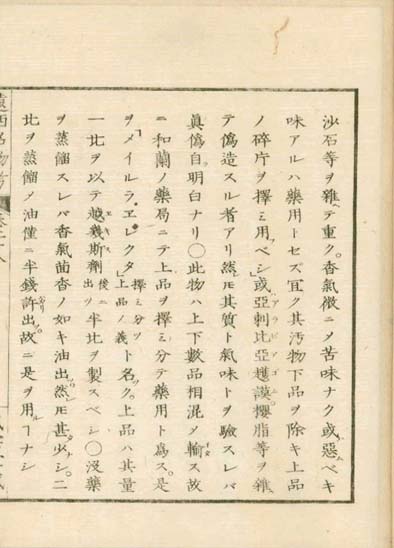 沙石等ヲ雜テ重ク。香氣微ニメ苦味ナク或惡ベキ
味アルハ藥用トセズ宜ク其汚物下品ヲ除キ上品
ノ碎片ヲ擇ミ用フベシ」或亞刺比亞護謨櫻脂等ヲ雜
テ僞造スル者アリ然ㇳモ其質ト氣味トヲ驗スレバ
眞僞自明白ナリ〇此物ハ上下數品相混メ輸ス故
ニ和蘭ノ藥局ニテ上品ヲ擇ミ分テ藥用ト爲ス。是
ヲ「メイルラ。ヱレクタ」擇ミ分ツ上品ノ義ト名ク。上品ハ其量
一比ヲ以テ越幾斯劑後ニ出ツ半比ヲ製スベシ〇沒藥
ヲ蒸餾スレバ香氣茴香ノ如キ油出ツ。然ㇳモ甚少シ。二
比ヲ蒸餾メ油僅ニ半錢許出。故ニ是ヲ用ルヿナシ
遠西名物考